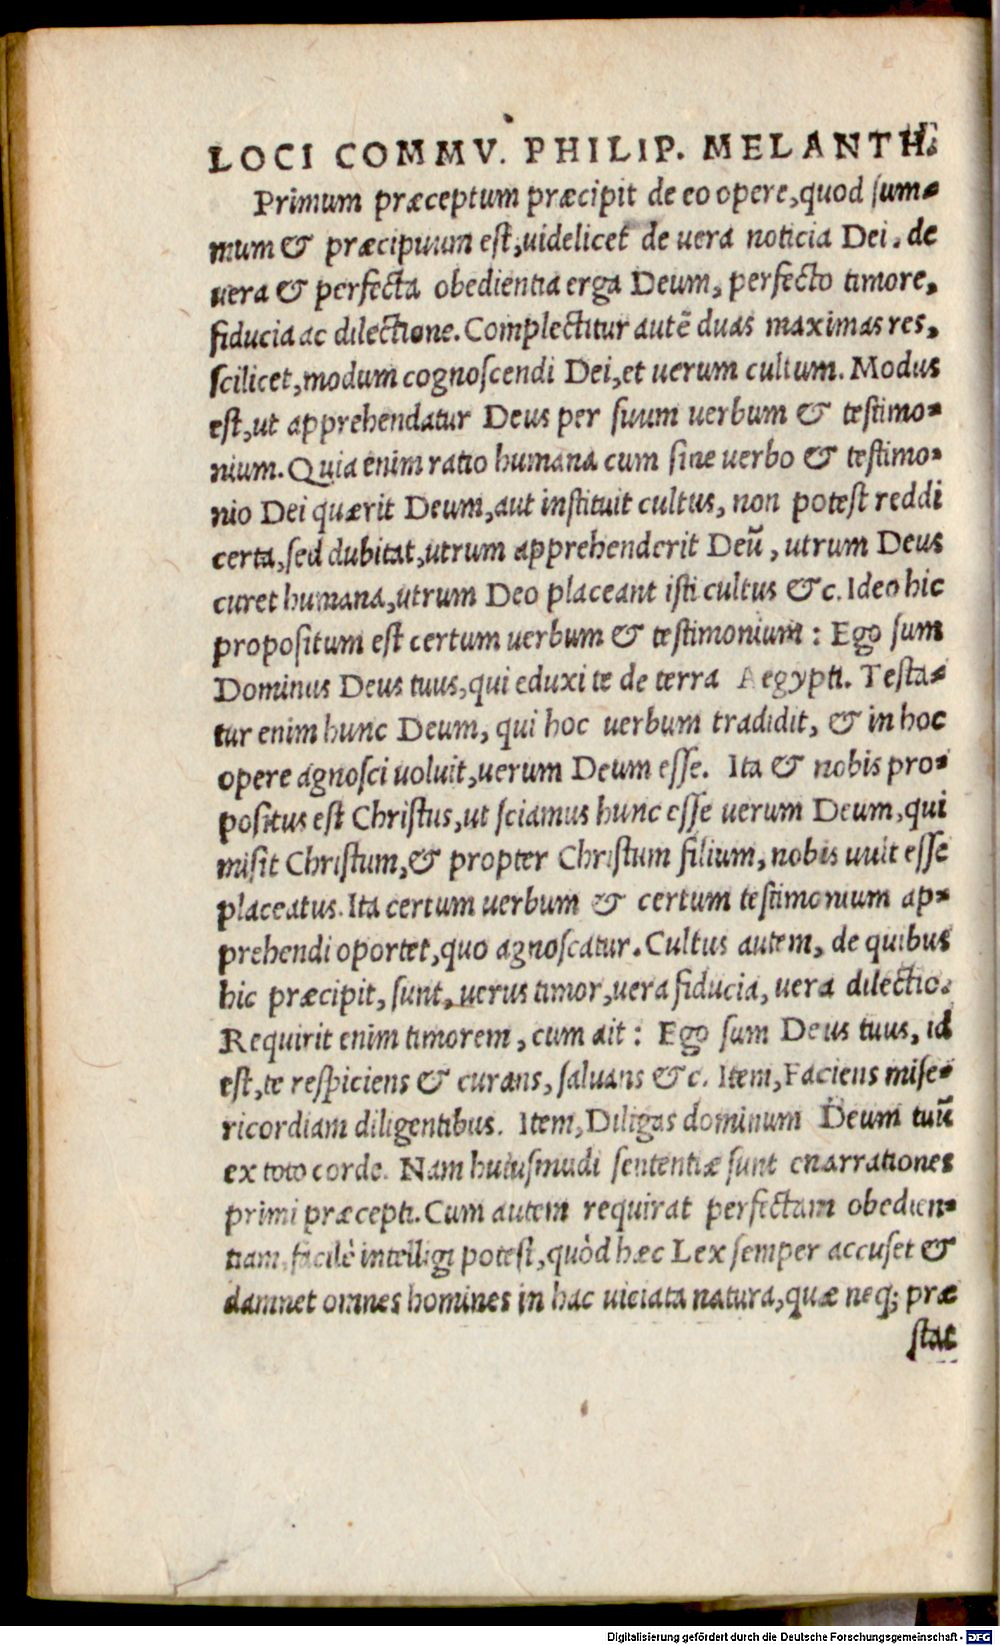 LOCI COMMV. PHILIP. MELANTH.
Primum præceptum præcipit de eo opere, quod ſum-
mum & præcipuum eſt, uidelicet de uera noticia Dei, de
uera & perfecta obedientia erga Deum, perfecto timore,
fiducia ac dilectione. Complectitur autẽ duas maximas res,
ſcilicet, modum cognoſcendi Dei, et uerum cultum. Modus
eſt, ut apprehendatur Deus per ſuum uerbum & teſtimo-
nium. Quia enim ratio humana cum ſine uerbo & teſtimo-
nio Dei quærit Deum, aut inſtituit cultus, non poteſt reddi
certa, ſed dubitat, utrum apprehenderit Deũ, utrum Deus
curet humana, utrum Deo placeant iſti cultus &c. Ideo hic
propoſitum eſt certum uerbum & teſtimonium : Ego ſum
Dominus Deus tuus, qui eduxi te de terra Aegypti. Teſta-
tur enim hunc Deum, qui hoc uerbum tradidit, & in hoc
opere agnoſci uoluit, uerum Deum eſſe. Ita & nobis pro-
poſitus eſt Chriſtus, ut ſciamus hunc eſſe uerum Deum, qui
miſit Chriſtum, & propter Chriſtum filium, nobis uult eſſe
placatus. Ita certum uerbum & certum teſtimonium ap-
prehendi oportet, quo agnoſcatur. Cultus autem, de quibus
hic præcipit, ſunt, uerus timor, uera fiducia, uera dilectio.
Requirit enim timorem, cum ait : Ego ſum Deus tuus, id
eſt, te reſpiciens & curans, ſaluans &c. Item, Faciens miſe-
ricordiam diligentibus. Item, Diligas dominum Deum tuũ
ex toto corde. Nam huiuſmodi ſententiæ ſunt enarrationes
primi præcepti. Cum autem requirat perfectam obedien-
tiam, facilè intelligi poteſt, quòd hæc Lex ſemper accuſet &
damnet omnes homines in hac uiciata natura, quæ neq; præ
ſtat
Digitalisierung gefördert durch die Deutsche Forschungsgemeinschaft - DFG